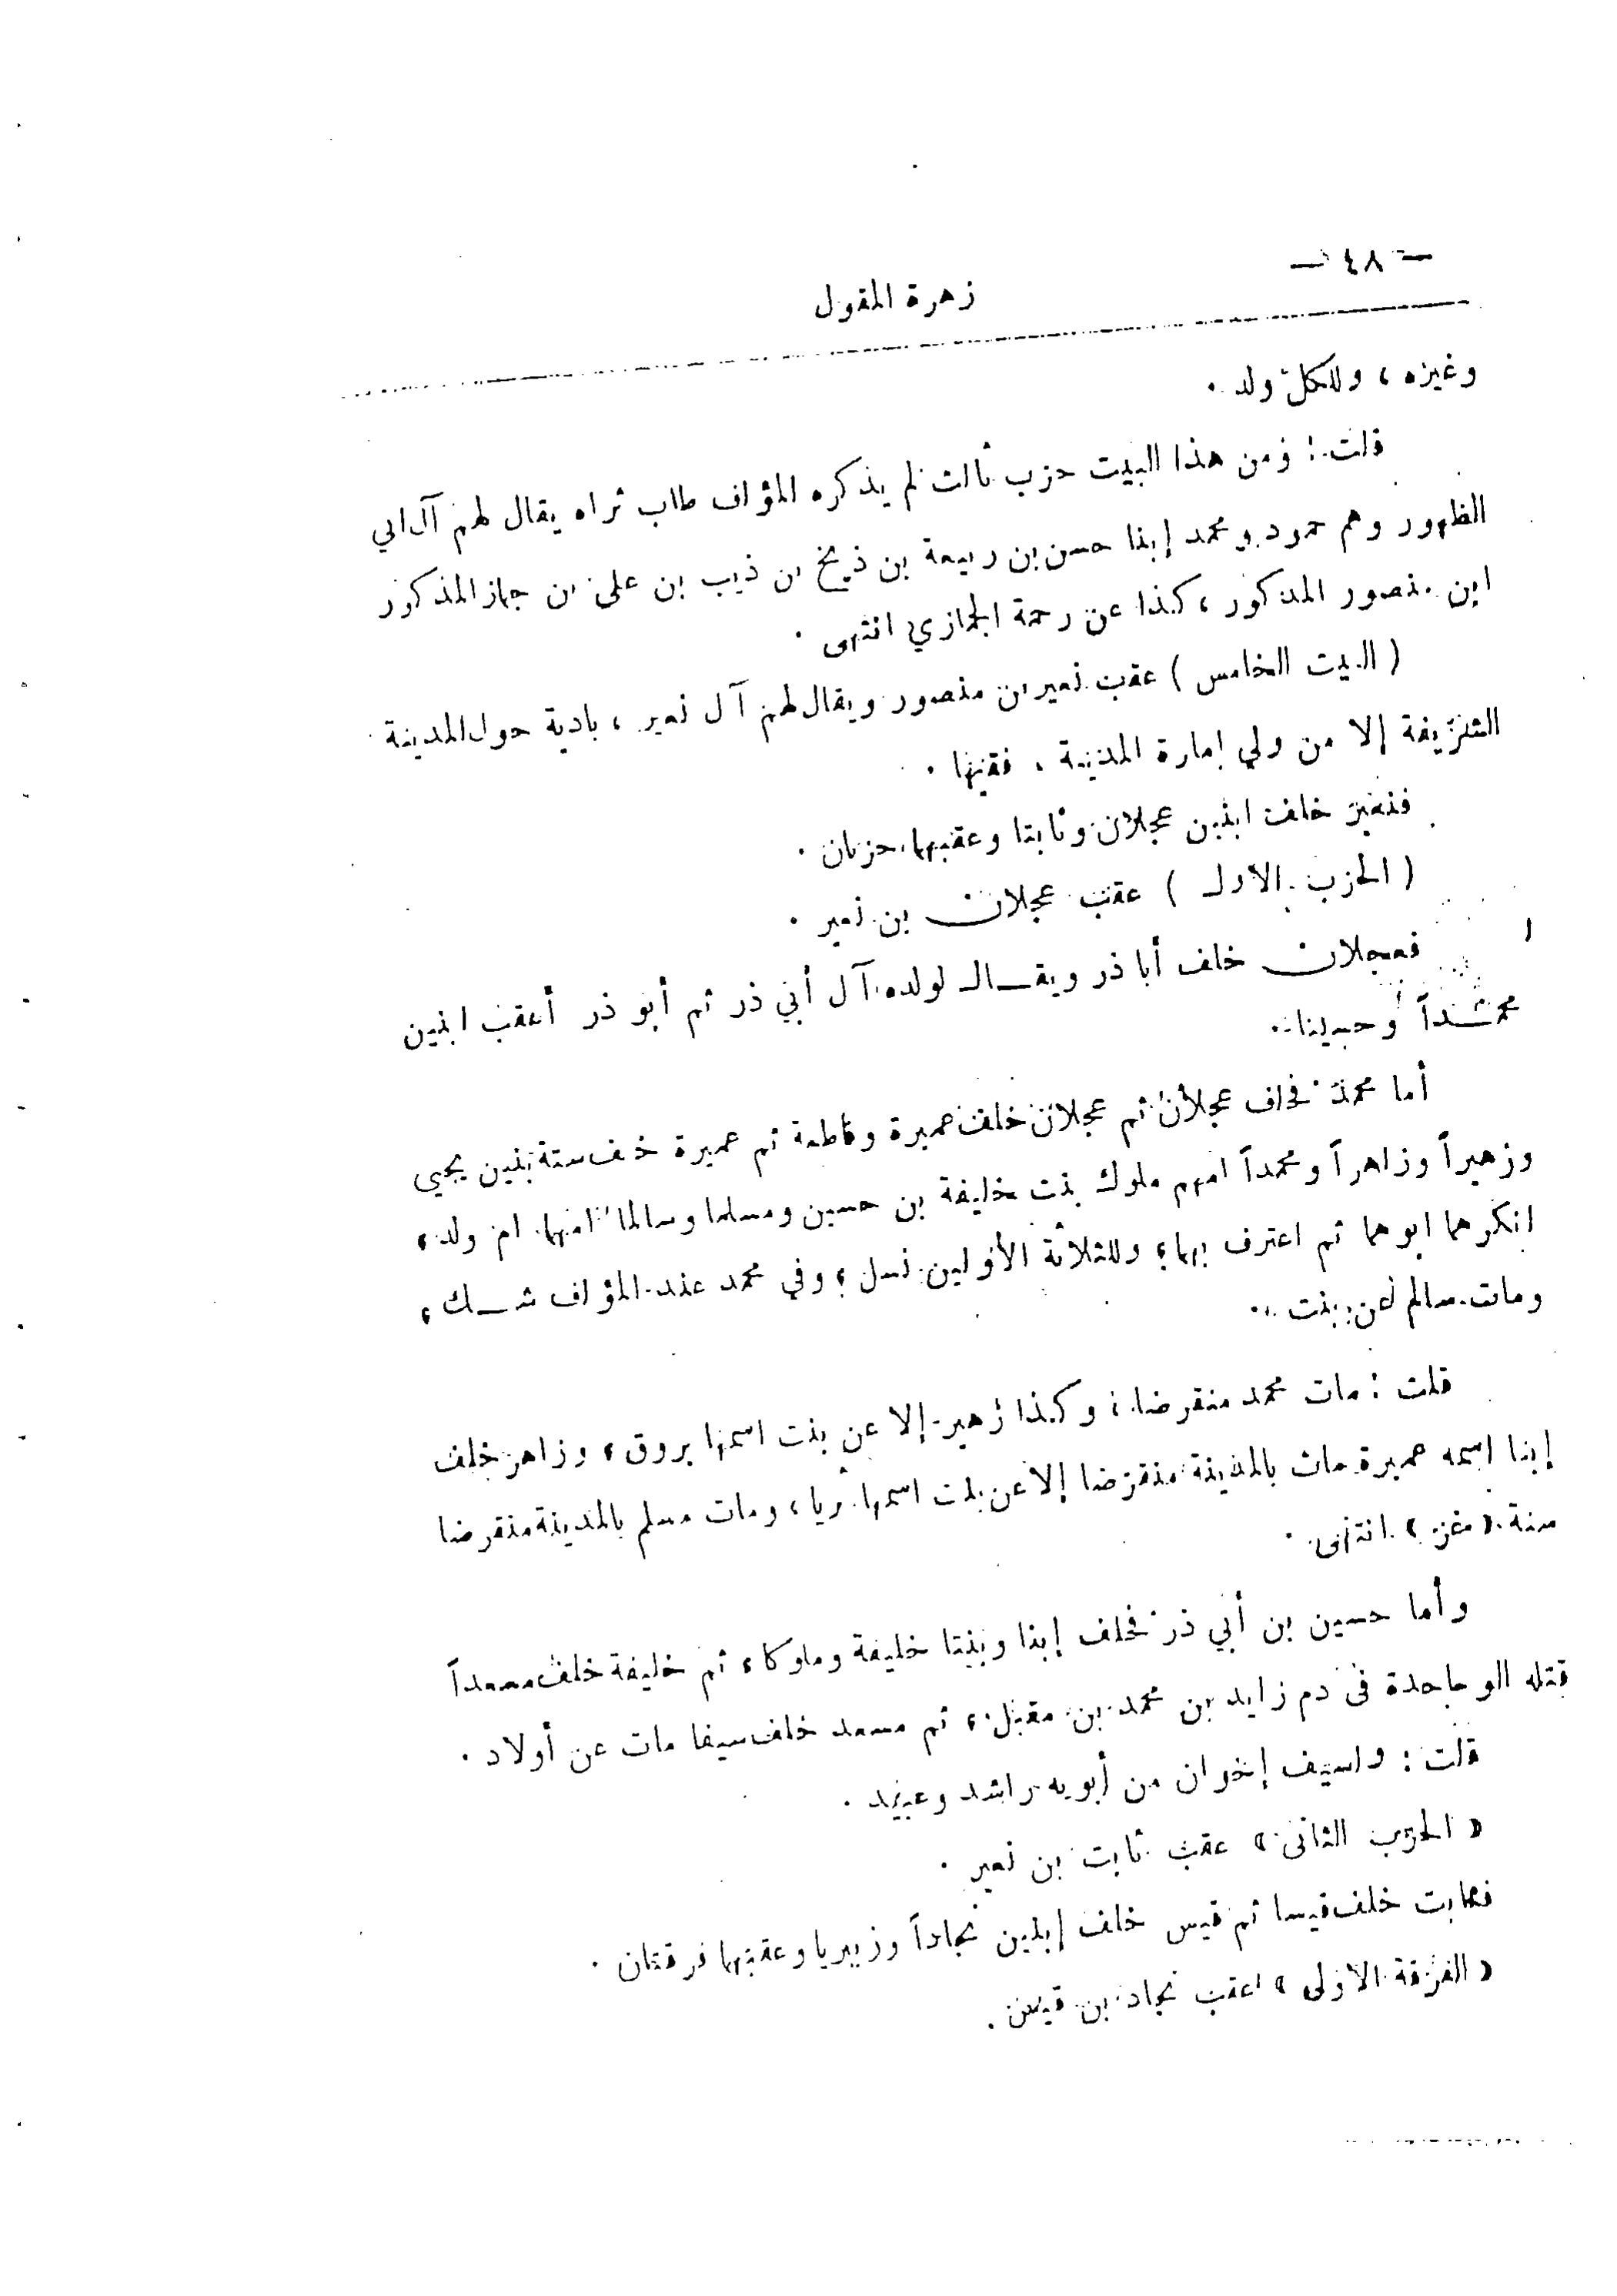 — ٤٨ —
زهرة المقول
وغيره ، ولكل ولد .
قلت : ومن هذا البيت حزب ثالث لم يذكره المؤلف طاب ثراه يقال لهم آل ابي
الظهور وهم حمود ومحمد إبنا حسن بن ربيعة بن ذيب بن علي بن جماز المذكور
ابن منصور المذكور ، كذا عن رحمة الجمازي انتهى .
( البيت الخامس ) عقب نعير بن منصور ويقال لهم آل نعير ، بادية حول المدينة
الشريفة إلا من ولي إمارة المدينة ، فقيها .
فنعير خلف ابنين عجلان وثابتا وعقبهما حزبان .
( الحزب الاول ) عقب عجلان بن نعير .
فعجلان خلف أبا ذر ويقال لولده آل أبي ذر ثم أبو ذر أعقب ابنين
محمداً وحسينا .
أما محمد فخلف عجلان ثم عجلان خلف عميرة وفاطمة ثم عميرة خلف ستة بنين يحيى
وزهيراً وزاهراً ومحمداً امهم ملوك بنت خليفة بن حسين ومسلما وسالما امهما ام ولد ،
انكرهما ابوهما ثم اعترف بهما ، وللثلاثة الأولين نسل ، وفي محمد عند المؤلف شك ،
ومات سالم عن بنت .
قلت : مات محمد منقرضا ، وكذا زهير إلا عن بنت اسمها بروق ، وزاهر خلف
إبنا اسمه عميرة مات بالمدينة منقرضا إلا عن بنت اسمها ثريا ، ومات مسلم بالمدينة منقرضا
سنة « مغز » انتهى .
وأما حسين بن أبي ذر فخلف إبنا وبنتا خليفة وملوكا ، ثم خليفة خلف مسعداً
قتله الوحاحدة في دم زايد بن محمد بن مقبل ، ثم مسعد خلف سيفا مات عن أولاد .
قلت : ولسيف إخوان من أبويه راشد وعبيد .
« الحزب الثاني » عقب ثابت بن نعير .
فثابت خلف قيسا ثم قيس خلف إبنين نجاداً وزبيريا وعقبهما فرقتان .
« الفرقة الاولى » عقب نجاد بن قيس .